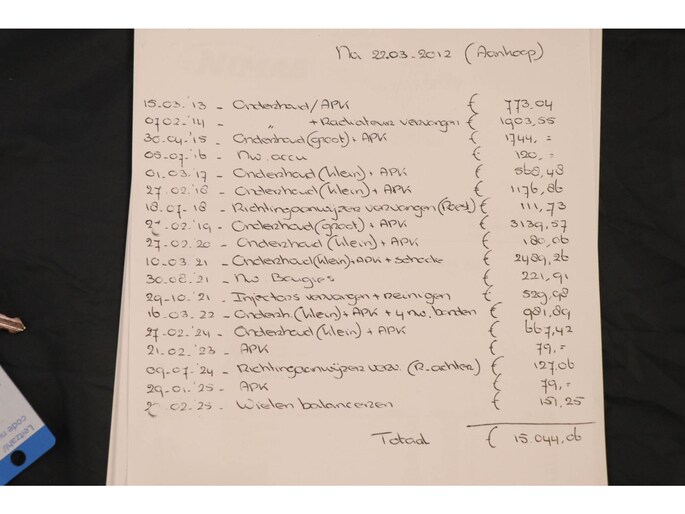 Na 22.03.2012 (Aankoop)
15.03.'13 - Onderhoud/APK € 773,04
07.02.'14 - " + Radiateur vervangen € 1903,55
30.04.'15 - Onderhoud (groot) + APK € 1744,=
05.07.'16 - Nw. accu € 120,=
01.03.'17 - Onderhoud (klein) + APK € 568,48
27.02.'18 - Onderhoud (klein) + APK € 1176,86
18.07.'18 - Richtingaanwijzer vervangen € 111,73
.02.'19 - Onderhoud (groot) + APK € 3139,57
27.02.'20 - Onderhoud (klein) + APK € 180,06
10.03.'21 - Onderhoud (klein) + APK + schade € 2489,26
30.08.'21 - Nw Bougies € 221,91
29.10.'21 - Injectors vervangen + Reinigen € 529,98
16.03.'22 - Onderh. (klein) + APK + 4 nw. banden € 981,89
27.02.'24 - Onderhoud (klein) + APK € 667,42
21.02.'23 - APK € 79,=
09.07.'24 - Richtingaanwijzer verv. (R. achter) € 127,06
29.01.'25 - APK € 79,=
.02.'25 - Wielen balanceren € 151,25
Totaal € 15.044,06
code